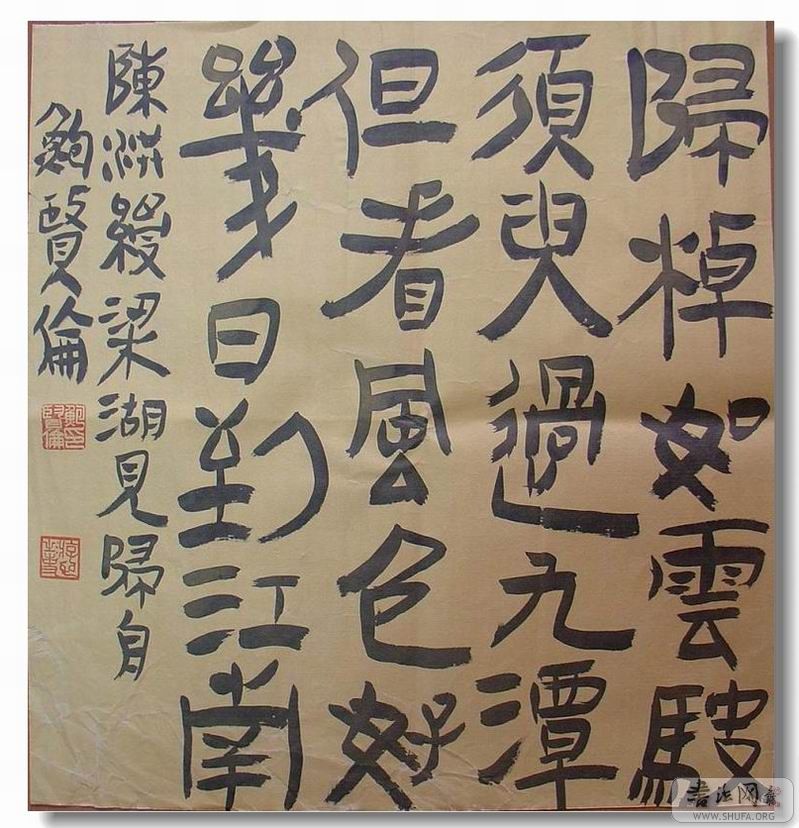 歸棹如雲駛
須臾過九潭
但看風色好
幾日到江南
陳洪綬梁湖見歸自
鮑賢倫
书法网
WWW.SHUFA.ORG